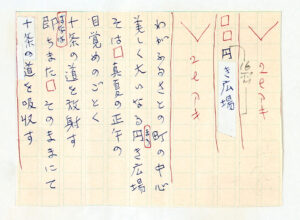 2行アキ
□□円き広場
2行アキ
わがふるさとの町の中心
美しく大いなる円き広場
そは□真夏の正午の
目覚めのごとく
十条の道を放射す
即ちまた□そのままにて
十条の道を吸収す